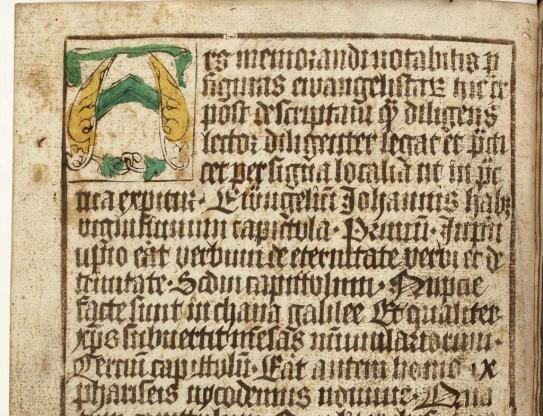 Ars memorandi notabilis p
figuras ewangelistaꝝ hic ex
post descriptam qͫ diligens
lector diligenter legat et pcti
cet per signa localia ut in pc
tica expitur. Ewngeliū Johannis habꝫ
viginti unum capitula. Primū. In prin
cipio erat verbum de eternitate verbi et de
trinitate. Scdm capittulum. Nupcie
facte sunt in chana galilee Et qualiter
xps subvertit mesas nūmulariorum.
Tercium capittulū. Erat autem homo ex
phariseis nycodemus nomine.
capittulum.